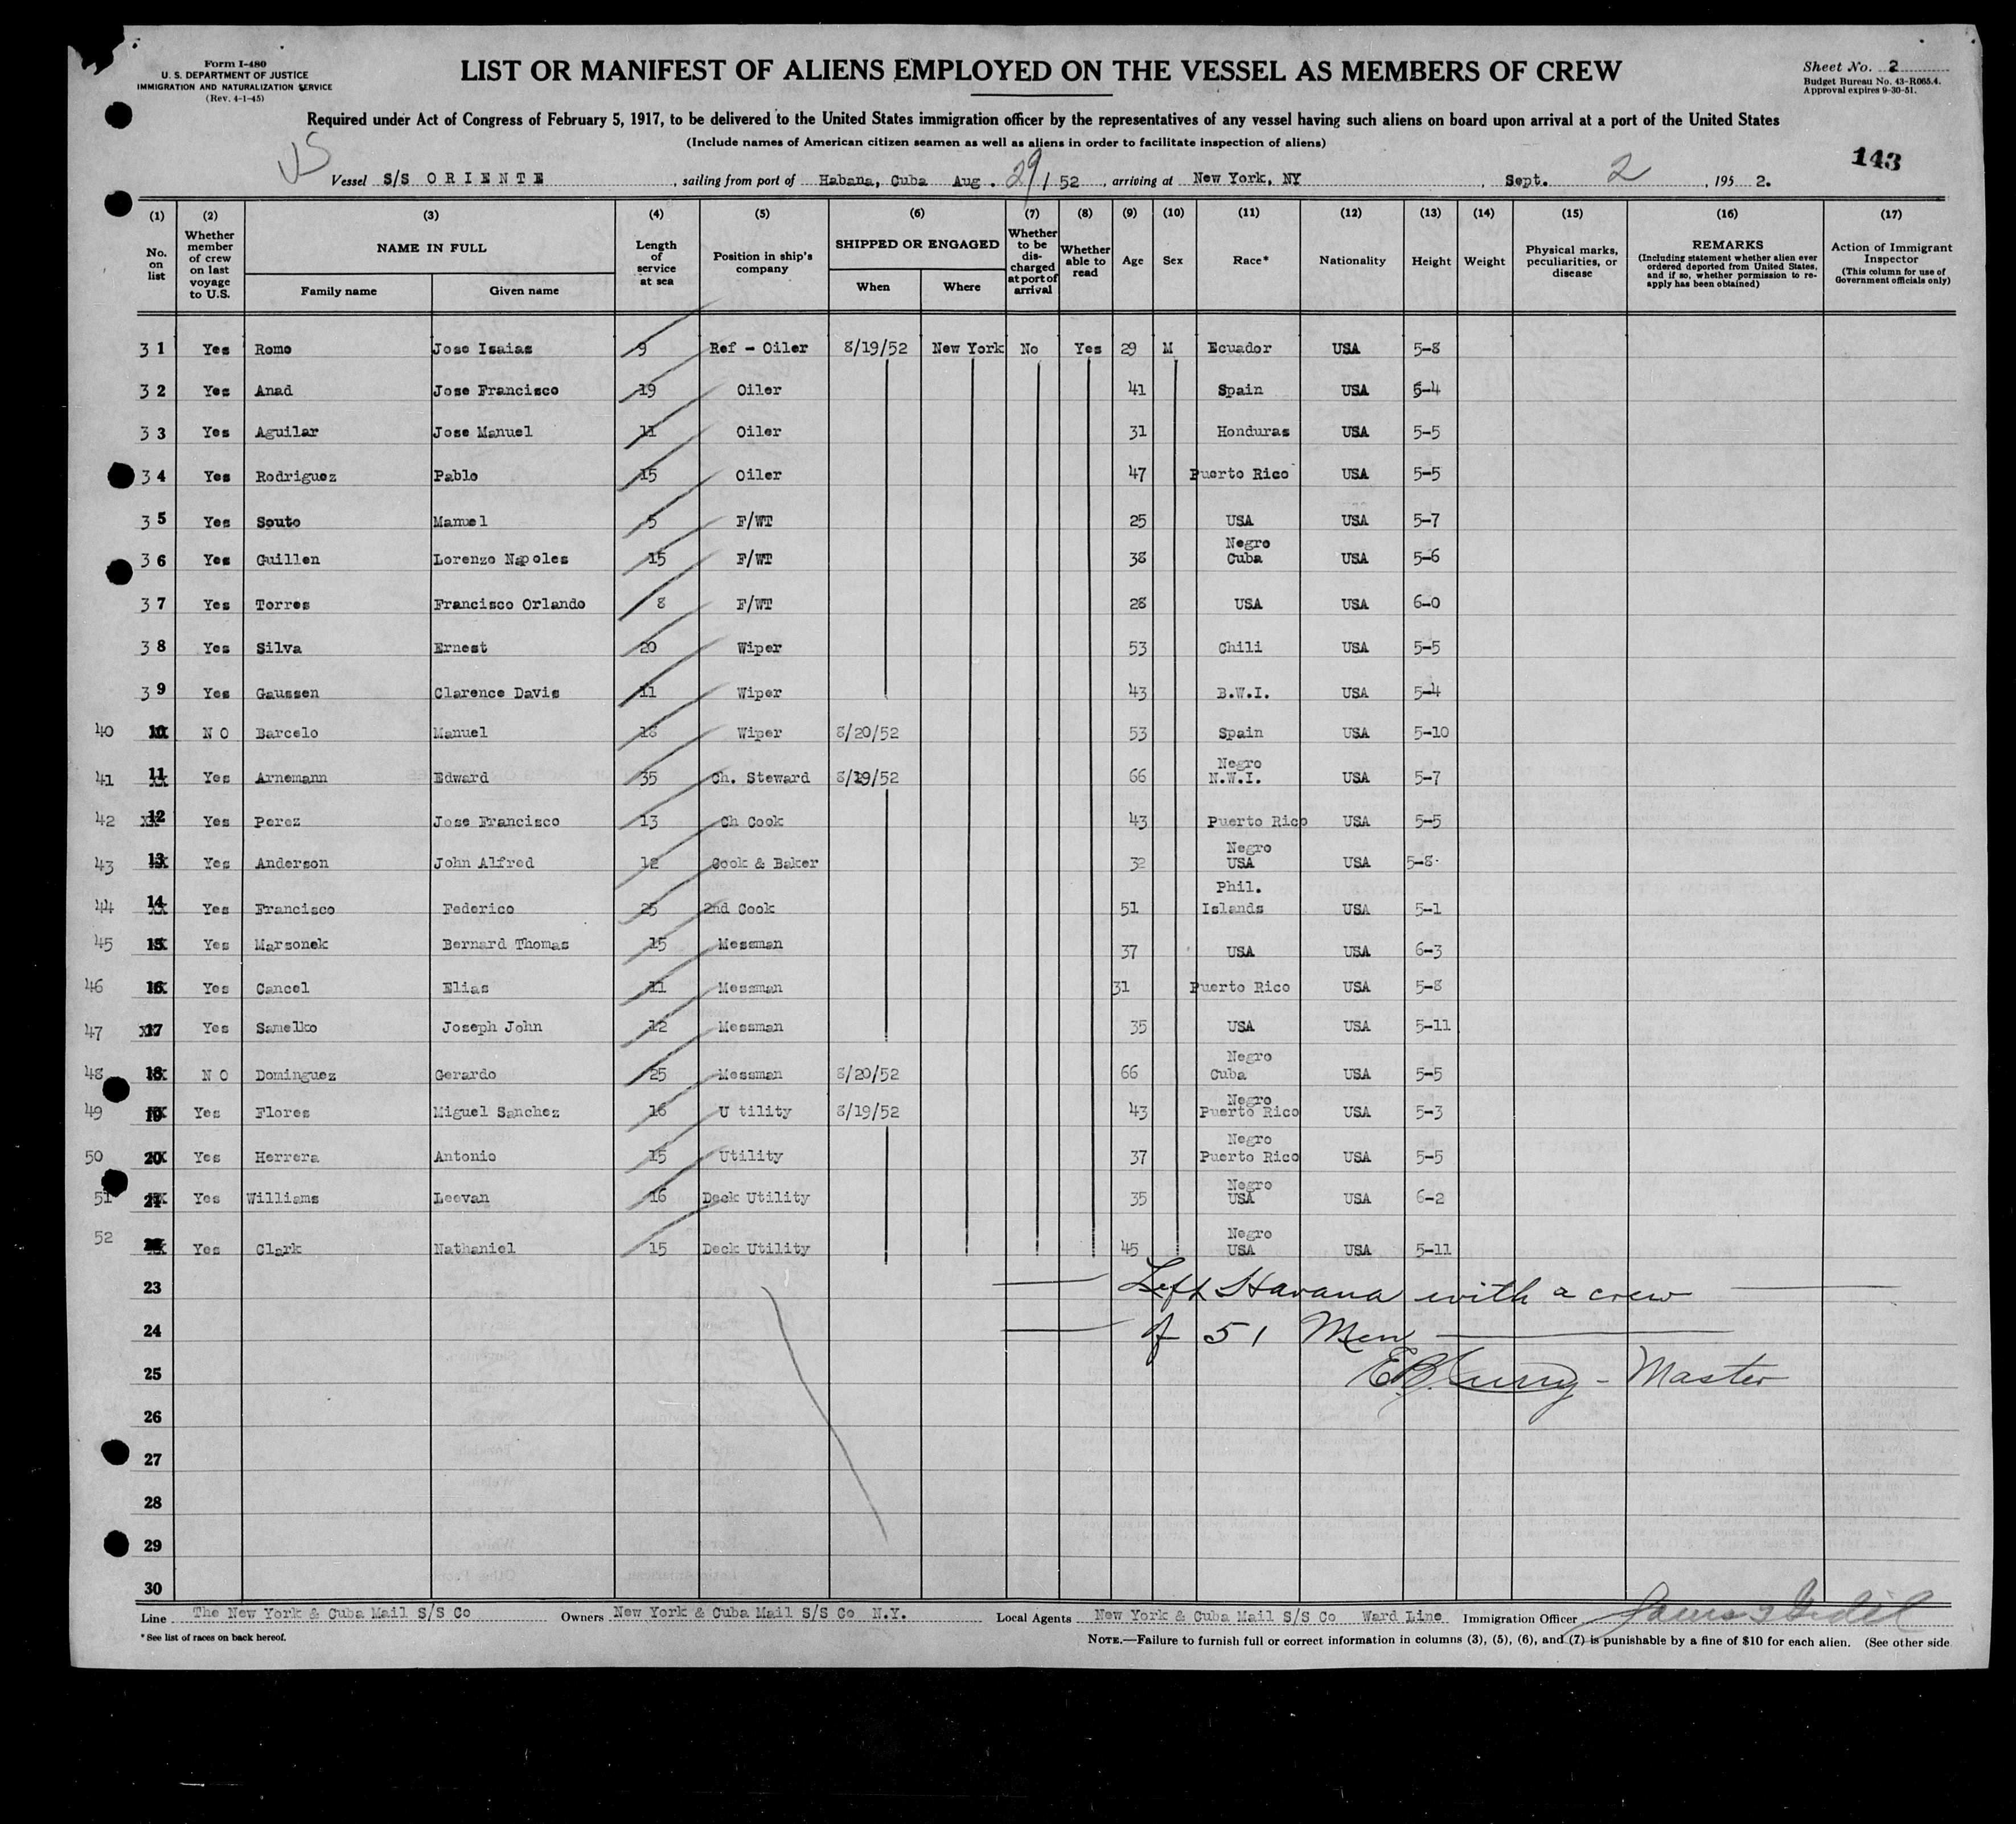 Form I-480
U. S. DEPARTMENT OF JUSTICE
IMMIGRATION AND NATURALIZATION SERVICE
(Rev. 4-1-45)
LIST OR MANIFEST OF ALIENS EMPLOYED ON THE VESSEL AS MEMBERS OF CREW
Sheet No. 2
Budget Bureau No. 43-R065.4.
Approval expires 9-30-51.
Required under Act of Congress of February 5, 1917, to be delivered to the United States immigration officer by the representatives of any vessel having such aliens on board upon arrival at a port of the United States
(Include names of American citizen seamen as well as aliens in order to facilitate inspection of aliens)
143
US
Vessel S/S ORIENTE, sailing from port of Habana, Cuba Aug. 29/52, arriving at New York, NY, Sept. 2, 1952.
(1) (2) (3) (4) (5) (6) (7) (8) (9) (10) (11) (12) (13) (14) (15) (16) (17)
No. on list
Whether member of crew on last voyage to U.S.
NAME IN FULL
Family name Given name
Length of service at sea
Position in ship's company
SHIPPED OR ENGAGED
When Where
Whether to be discharged at port of arrival
Whether able to read
Age
Sex
Race*
Nationality
Height
Weight
Physical marks, peculiarities, or disease
REMARKS
(Including statement whether alien ever ordered deported from United States, and if so, whether permission to re-apply has been obtained)
Action of Immigrant Inspector
(This column for use of Government officials only)
31 Yes Romo Jose Isaias 9 Ref - Oiler 8/19/52 New York No Yes 29 M Ecuador USA 5-8
32 Yes Anad Jose Francisco 19 Oiler 41 Spain USA 5-4
33 Yes Aguilar Jose Manuel 11 Oiler 31 Honduras USA 5-5
34 Yes Rodriguez Pablo 15 Oiler 47 Puerto Rico USA 5-5
35 Yes Souto Manuel 5 F/WT 25 USA USA 5-7
36 Yes Guillen Lorenzo Napoles 15 F/WT 38 Negro Cuba USA 5-6
37 Yes Torres Francisco Orlando 8 F/WT 28 USA USA 6-0
38 Yes Silva Ernest 20 Wiper 53 Chili USA 5-5
39 Yes Gaussen Clarence Davis 11 Wiper 43 B.W.I. USA 5-4
40 10 NO Barcelo Manuel 18 Wiper 8/20/52 53 Spain USA 5-10
41 11 Yes Arnemann Edward 35 Ch. Steward 8/19/52 66 Negro N.W.I. USA 5-7
42 12 Yes Perez Jose Francisco 13 Ch Cook 43 Puerto Rico USA 5-5
43 13 Yes Anderson John Alfred 12 Cook & Baker 32 Negro USA USA 5-8
44 14 Yes Francisco Federico 25 2nd Cook 51 Phil. Islands USA 5-1
45 15 Yes Marsonek Bernard Thomas 15 Messman 37 USA USA 6-3
46 16 Yes Cancel Elias 11 Messman 31 Puerto Rico USA 5-8
47 17 Yes Samelko Joseph John 12 Messman 35 USA USA 5-11
48 18 NO Dominguez Gerardo 25 Messman 8/20/52 66 Negro Cuba USA 5-5
49 19 Yes Flores Miguel Sanchez 16 U tility 8/19/52 43 Negro Puerto Rico USA 5-3
50 20 Yes Herrera Antonio 15 Utility 37 Negro Puerto Rico USA 5-5
51 21 Yes Williams Leevan 16 Deck Utility 35 Negro USA USA 6-2
52 Yes Clark Nathaniel 15 Deck Utility 45 Negro USA USA 5-11
23 Left Havana with a crew
24 of 51 Men
25 Master
26
27
28
29
30
Line The New York & Cuba Mail S/S Co Owners New York & Cuba Mail S/S Co N.Y. Local Agents New York & Cuba Mail S/S Co Ward Line Immigration Officer
*See list of races on back hereof.
NOTE.—Failure to furnish full or correct information in columns (3), (5), (6), and (7) is punishable by a fine of $10 for each alien. (See other side